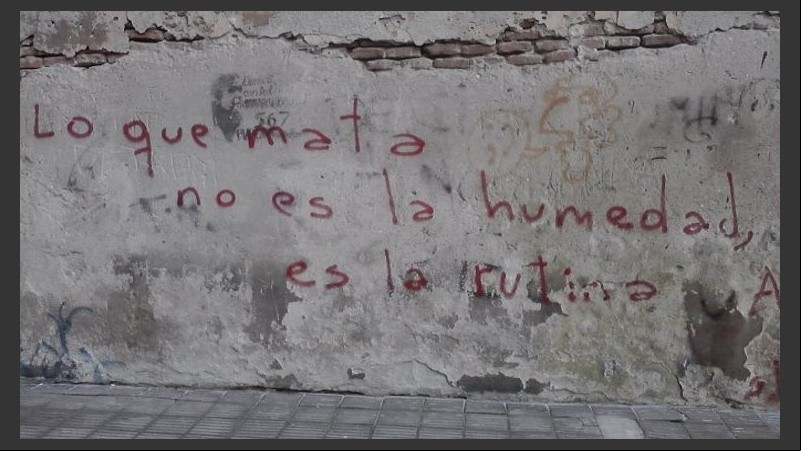 Lo que mata
no es la humedad,
es la rutina
A